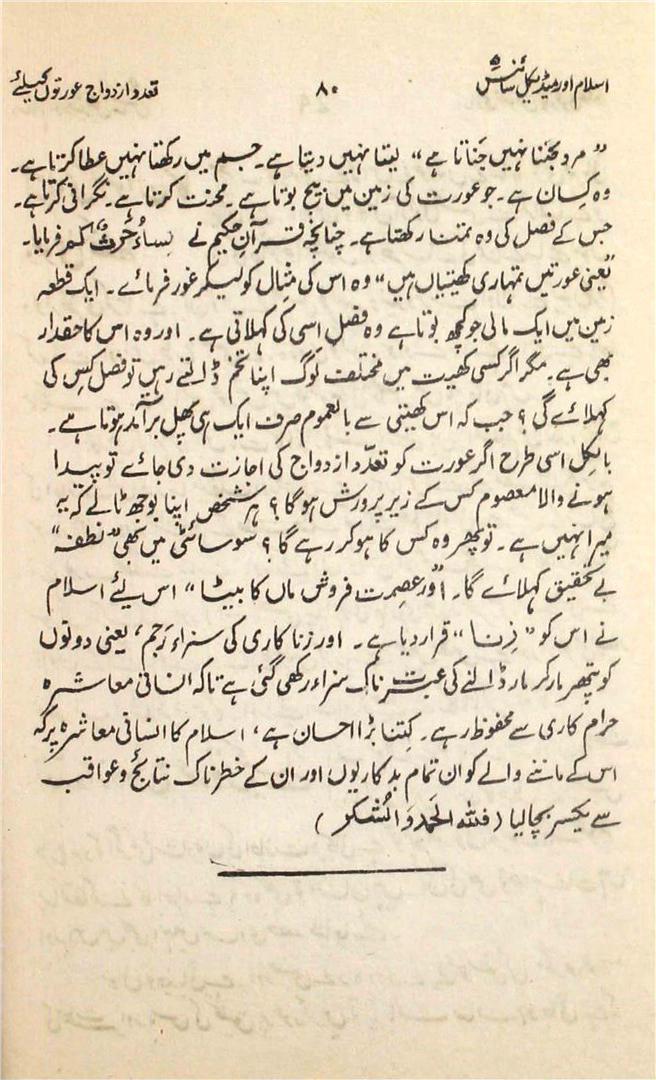 اسلام اور میڈیکل سائنس
۸۰
تعدد ازدواج عورتوں کیلئے
”مرد جَنتا نہیں جَناتا ہے“ لیتا نہیں دیتا ہے۔ جسم میں رکھتا نہیں عطا کرتا ہے۔
وہ کِسان ہے۔ جو عورت کی زمین میں بیج بوتا ہے۔ محنت کرتا ہے۔ نگرانی کرتا ہے۔
جس کے فصل کی وہ تمنا رکھتا ہے۔ چنانچہ قرآنِ حکیم نے نِساءُکُمْ حَرْثٌ لکم فرمایا۔
”یعنی عورتیں تمہاری کھیتیاں ہیں“ وہ اس کی مثال کو لیکر غور فرمائے۔ ایک قطعہ
زمین میں ایک مالی جو کچھ بوتا ہے وہ فصل اسی کی کہلاتی ہے۔ اور وہ اس کا حقدار
بھی ہے۔ مگر اگر کسی کھیت میں مختلف لوگ اپنا تخم ڈالتے رہیں تو فصل کِس کی
کہلائے گی؟ جب کہ اس کھیتی سے بالعموم صرف ایک ہی پھل برآمد ہوتا ہے۔
بالکل اسی طرح اگر عورت کو تعدّد ازدواج کی اجازت دی جائے تو پیدا
ہونے والا معصوم کس کے زیرِ پرورش ہو گا؟ ہر شخص اپنا بوجھ ٹالے کہ یہ
میرا نہیں ہے۔ تو پھر وہ کس کا ہو کر رہے گا؟ سوسائٹی میں بھی ”نطفہ“
بے تحقیق کہلائے گا۔ اور ”عصمت فروش ماں کا بیٹا“ اس لیے اسلام
نے اس کو ”زِنا“ قرار دیا ہے۔ اور زنا کاری کی سزاء رَجم، یعنی دونوں
کو پتھر مار کر مار ڈالنے کی عبرتناک سزاء رکھی گئی ہے تاکہ انسانی معاشرہ
حرام کاری سے محفوظ رہے۔ کِتنا بڑا احسان ہے، اسلام کا انسانی معاشرہ پر کہ
اس کے ماننے والے کو ان تمام بد کاریوں اور ان کے خطرناک نتائج و عواقب
سے یکسر بچا لیا (فللّٰہ الحَمد وَالشکر)